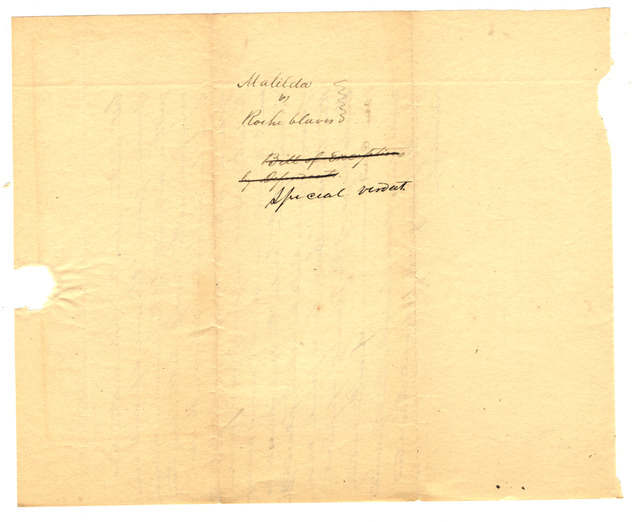 Matilda
vs
Rocheblaves
Bill of Exceptions
by Defendant
Special verdict